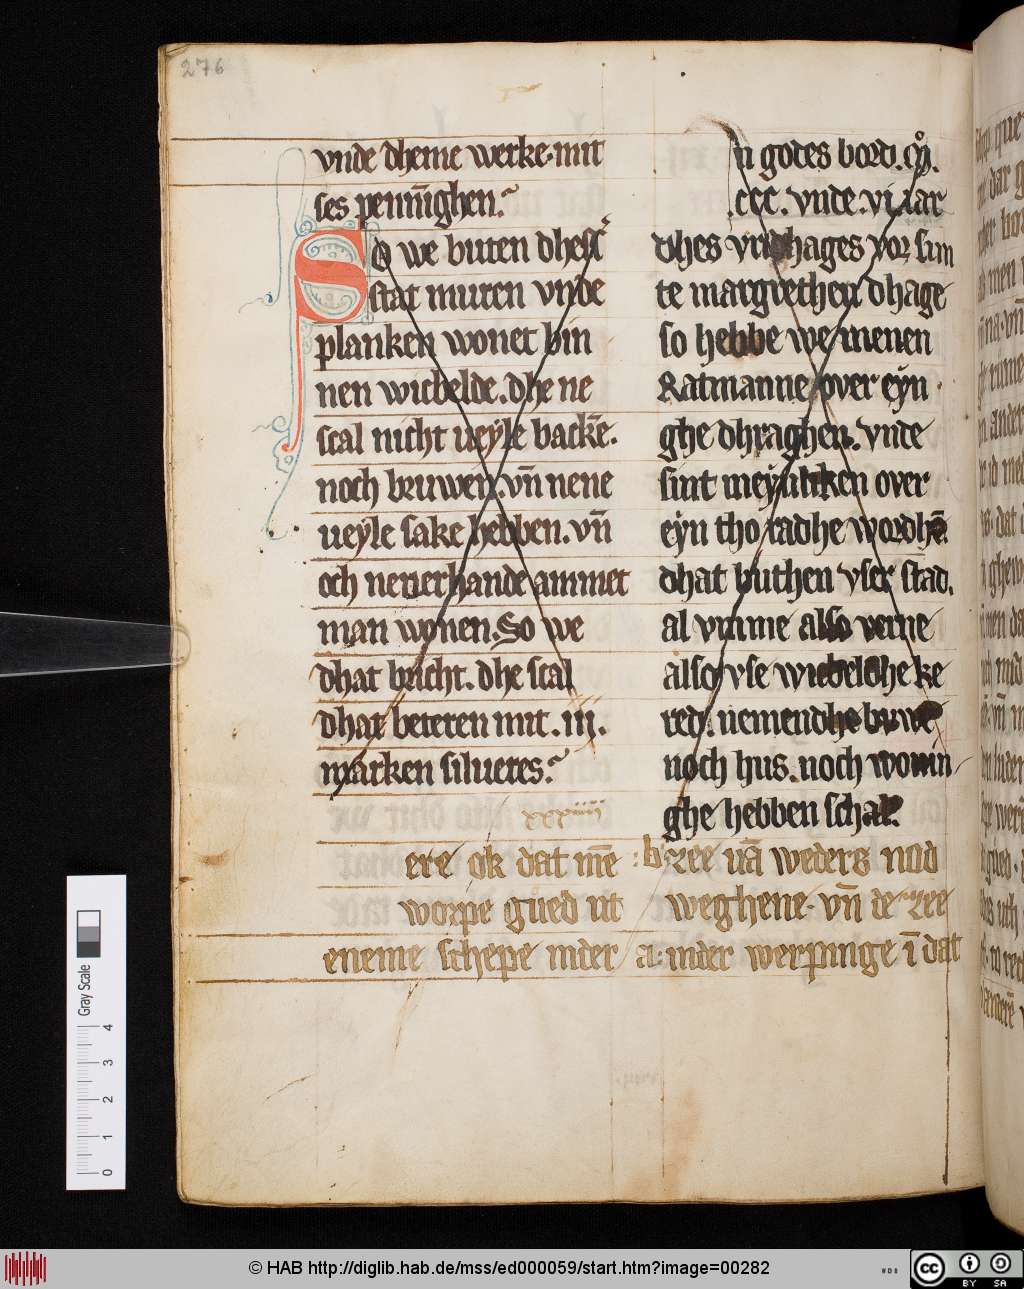 276
vnde dheme werke. mit
ses penni̅ghen.
So we buten dhesse
stat muren vnde
planken wonet bin
nen wicbelde. dhe ne
scal nicht ueyle backe̅.
noch bruwen. vn̅ nene
ueyle sake hebben. vn̅
och nenerhande ammet
man wonen. So we
dhat bricht. dhe scal
dhat beteren mit. iii.
marken silueres.
xxxiiii
n godes bord. M̊.
ccc. vnde. vi. iar
dhes vridhages vor sun
te margrethen dhage
so hebbe we menen
Ratmanne over eyn
ghe dhraghen. vnde
sint meynliken over
eyn tho radhe wordhe̅.
dhat buthen vser stad.
al vmme also verne
also vse wicbeldhe ke
red. nemendhe buwe
noch hus. noch wonin
ghe hebben schal.
ere ok dat me̅
worpe gůed ut
eneme schepe inder
:b zee ua̅ weders nod
weghene. vn̅ de zee
a: inder werpinge i̅ dat
Gray Scale
0 1 2 3 4
© HAB http://diglib.hab.de/mss/ed000059/start.htm?image=00282
WDB
cc BY SA